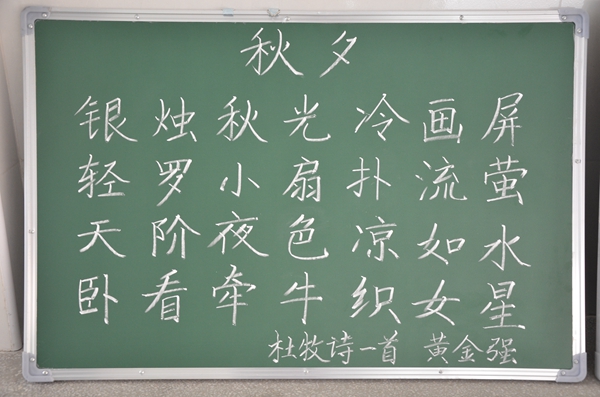 秋夕
银烛秋光冷画屏
轻罗小扇扑流萤
天阶夜色凉如水
卧看牵牛织女星
杜牧诗一首 黄金强